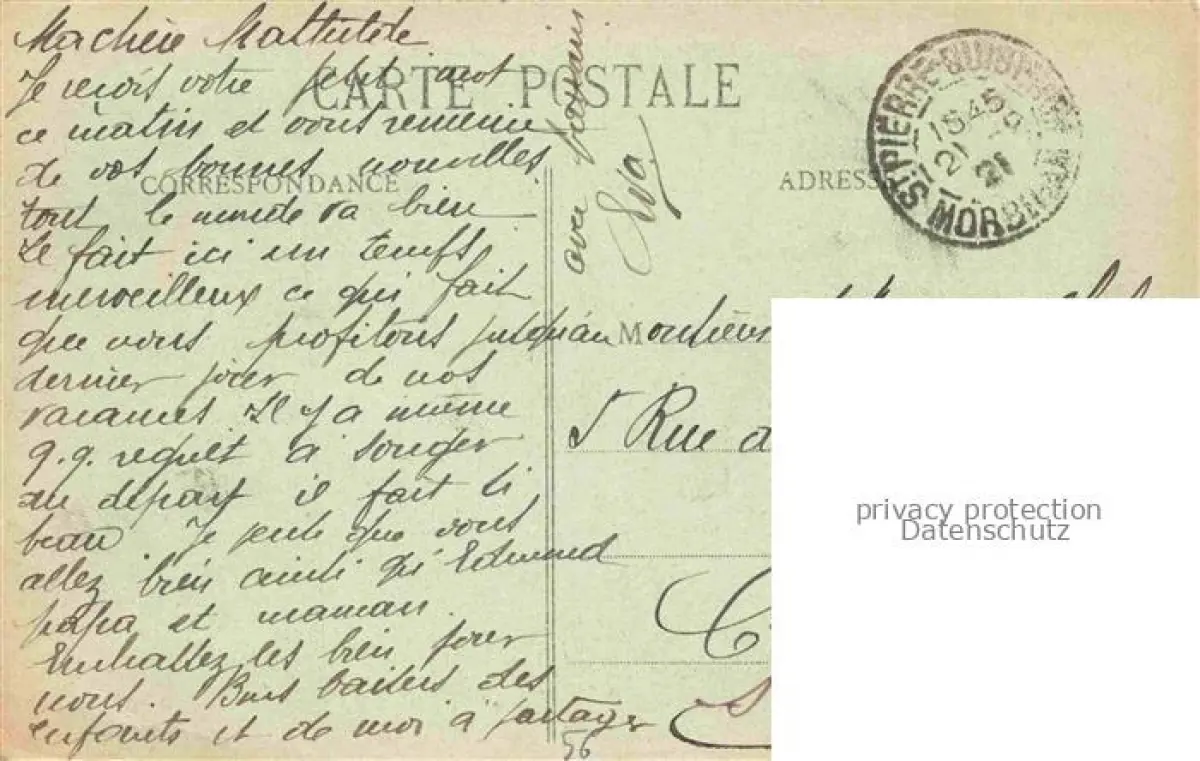 Ma chère Mathilde
Je reçois votre petit mot
ce matin et vous remercie
de vos bonnes nouvelles
tout le monde va bien
Il fait ici un temps
merveilleux ce qui fait
que nous profitons jusqu'au
dernier jour de nos
vacances Il y a même
q.q. regret à songer
au départ il fait si
beau. Je pense que vous
allez bien ainsi qu'Edmond
papa et maman.
Embrassez les bien pour
nous. Bons baisers des
enfants et de moi à partager
avec
CARTE POSTALE
CORRESPONDANCE
ADRESS
ST PIERRE-QUIBERON
MORBIHAN
21
21
Monsieur
5 Rue d
56
privacy protection
Datenschutz